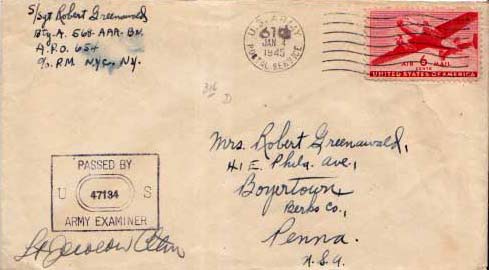 S/Sgt Robert Greenawald
Bty-A. 568. AAA-Bn.
A.P.O. 654
c/o P.M. N.Y.C., N.Y.
U.S. ARMY
616
JAN 4
1945
POSTAL SERVICE
AIR MAIL
6
CENTS
UNITED STATES OF AMERICA
316
D
Mrs. Robert Greenawald,
41 E. Phila. Ave.,
Boyertown,
Berks Co.,
Penna.
U.S.A.
PASSED BY
U 47134 S
ARMY EXAMINER
Lt